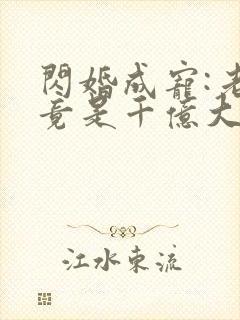 閃婚成寵:老
竟是千億大
江水東流